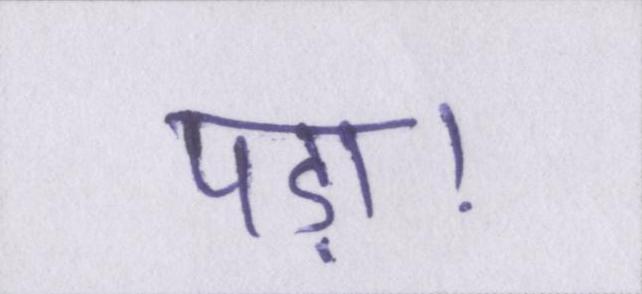 पड़ा!